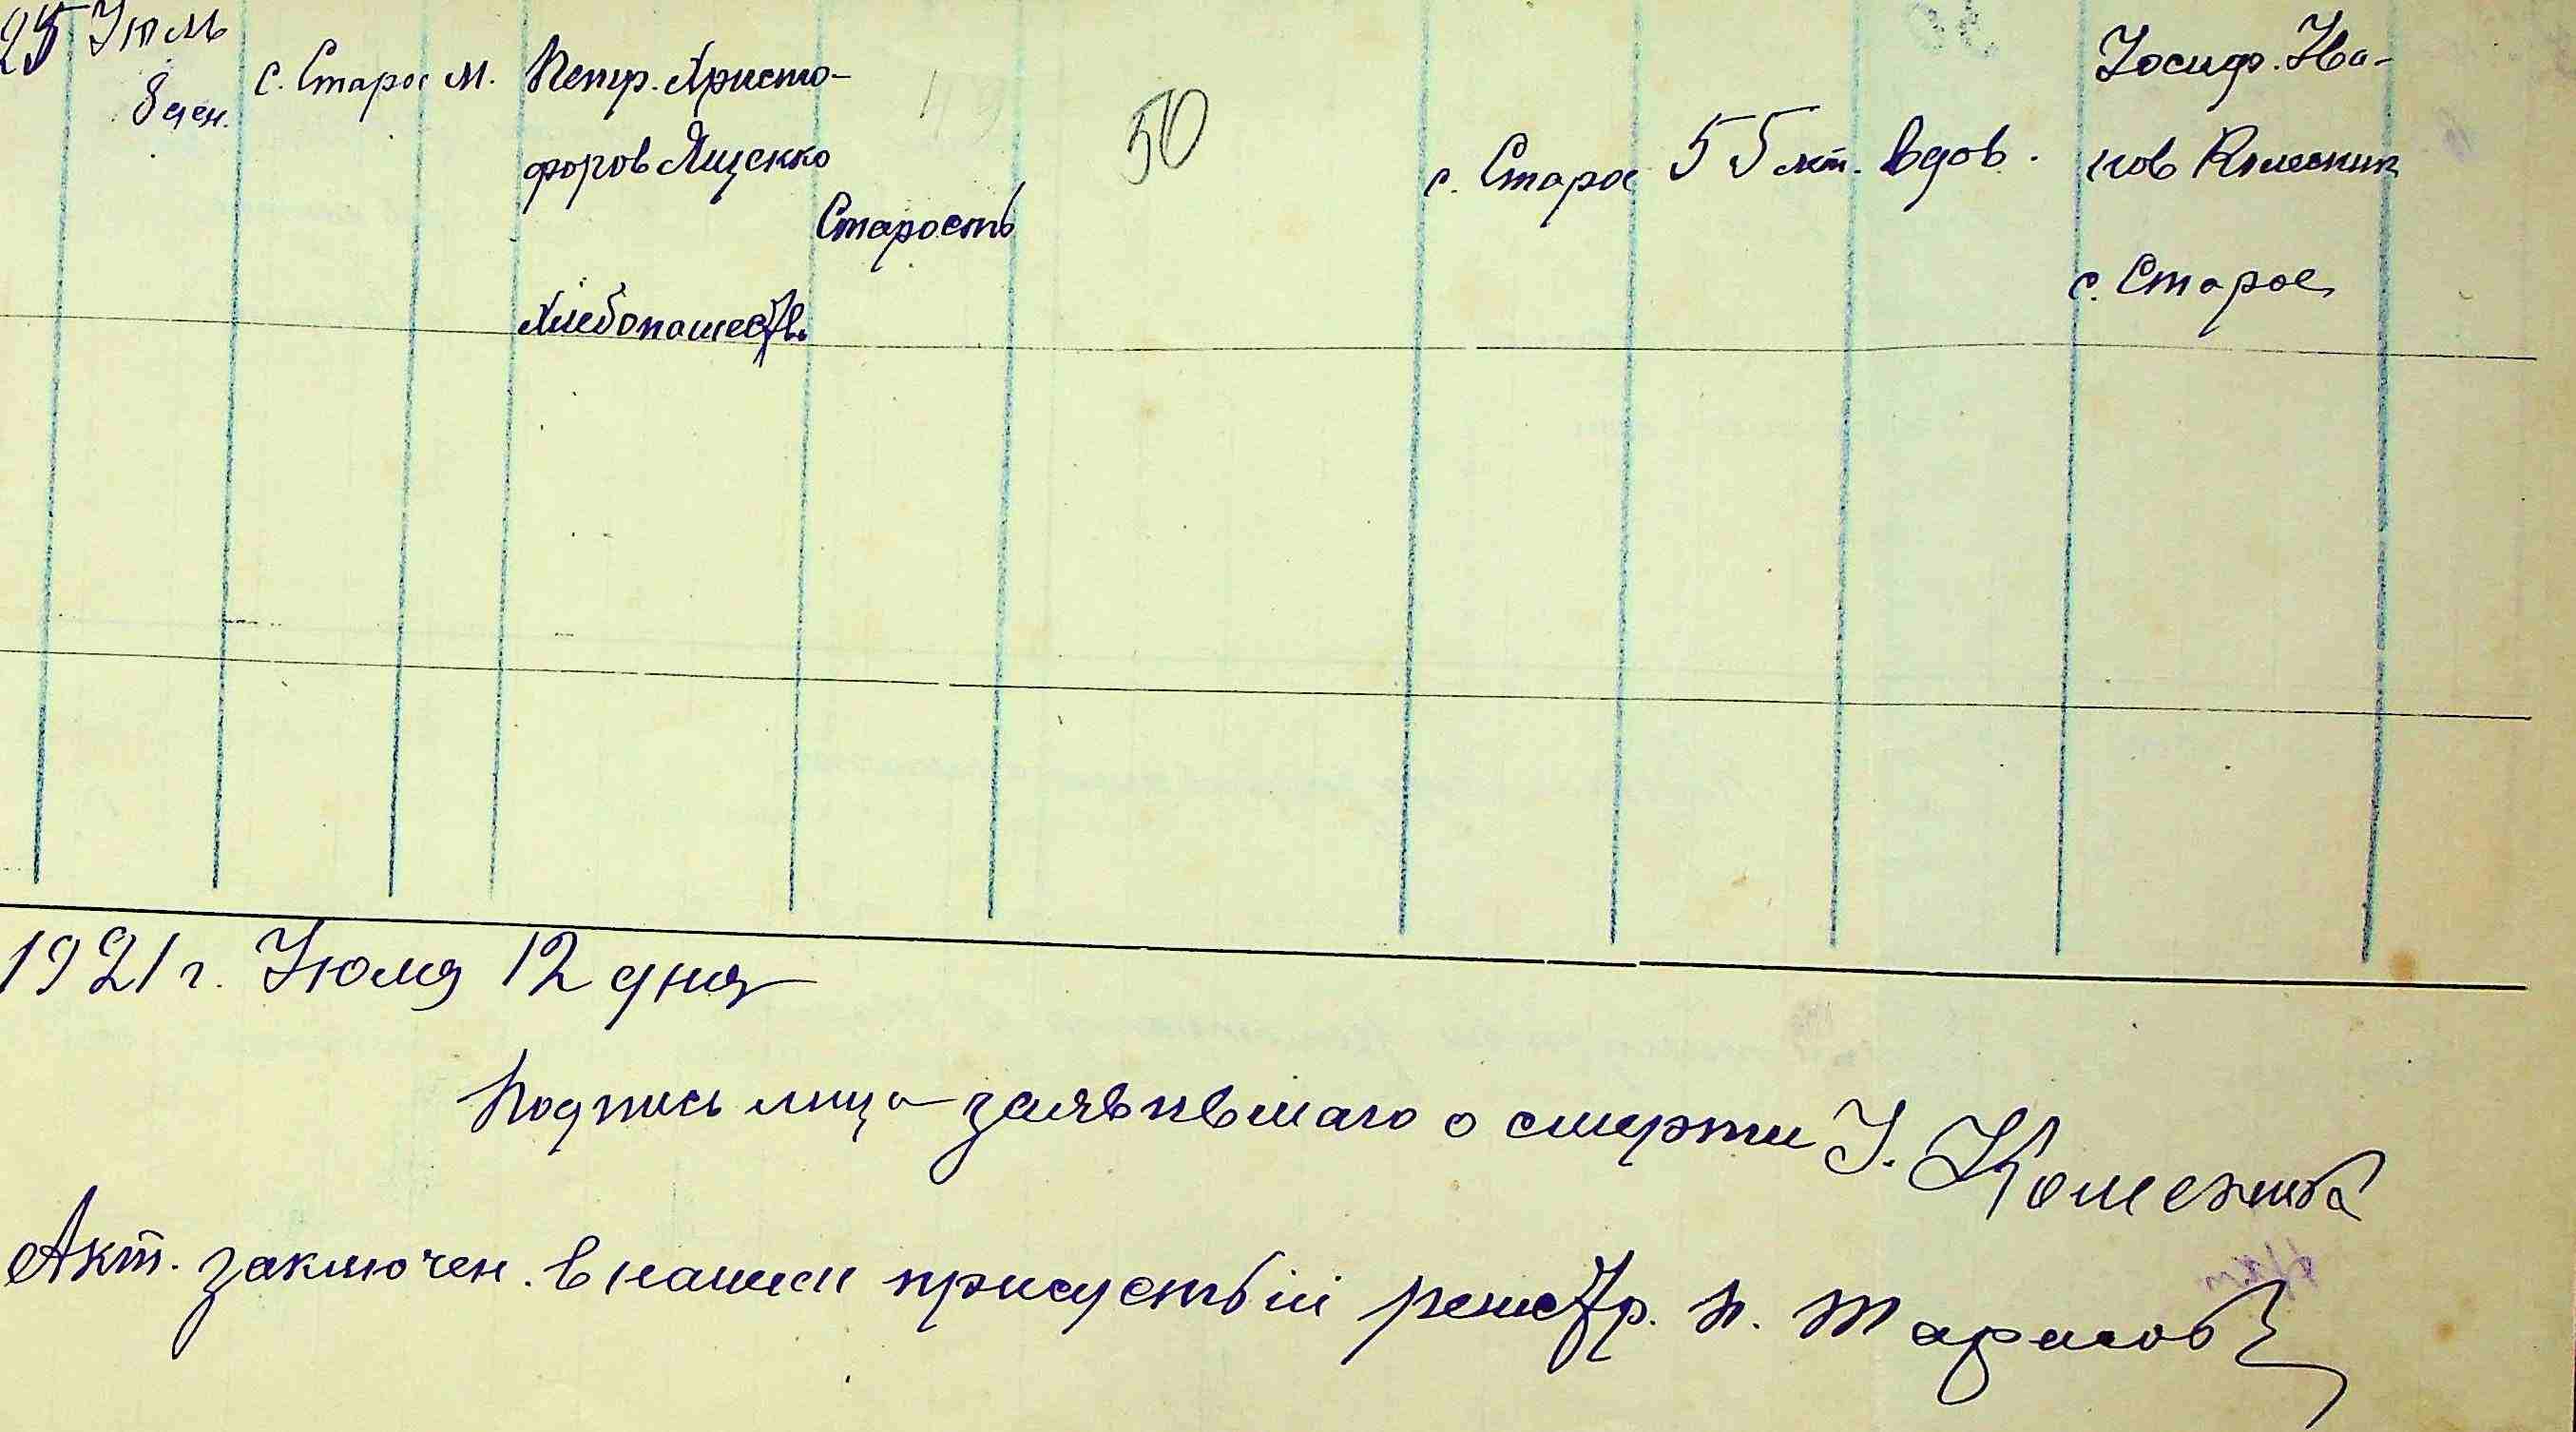 25 Июль
8 ден.
с. Старое
м.
Петр. Христо-
форов Ященко
Хлебопашеств.
Старость
50
с. Старое
55 лет.
Вдов.
Иосиф. Ива-
нов Колесник
с. Старое
1921 г. Июля 12 дня
Подпись лица заявившаго о смерти И. Колесник
Акт. заключен. в нашем присуствіи регистр. П. Тарасов